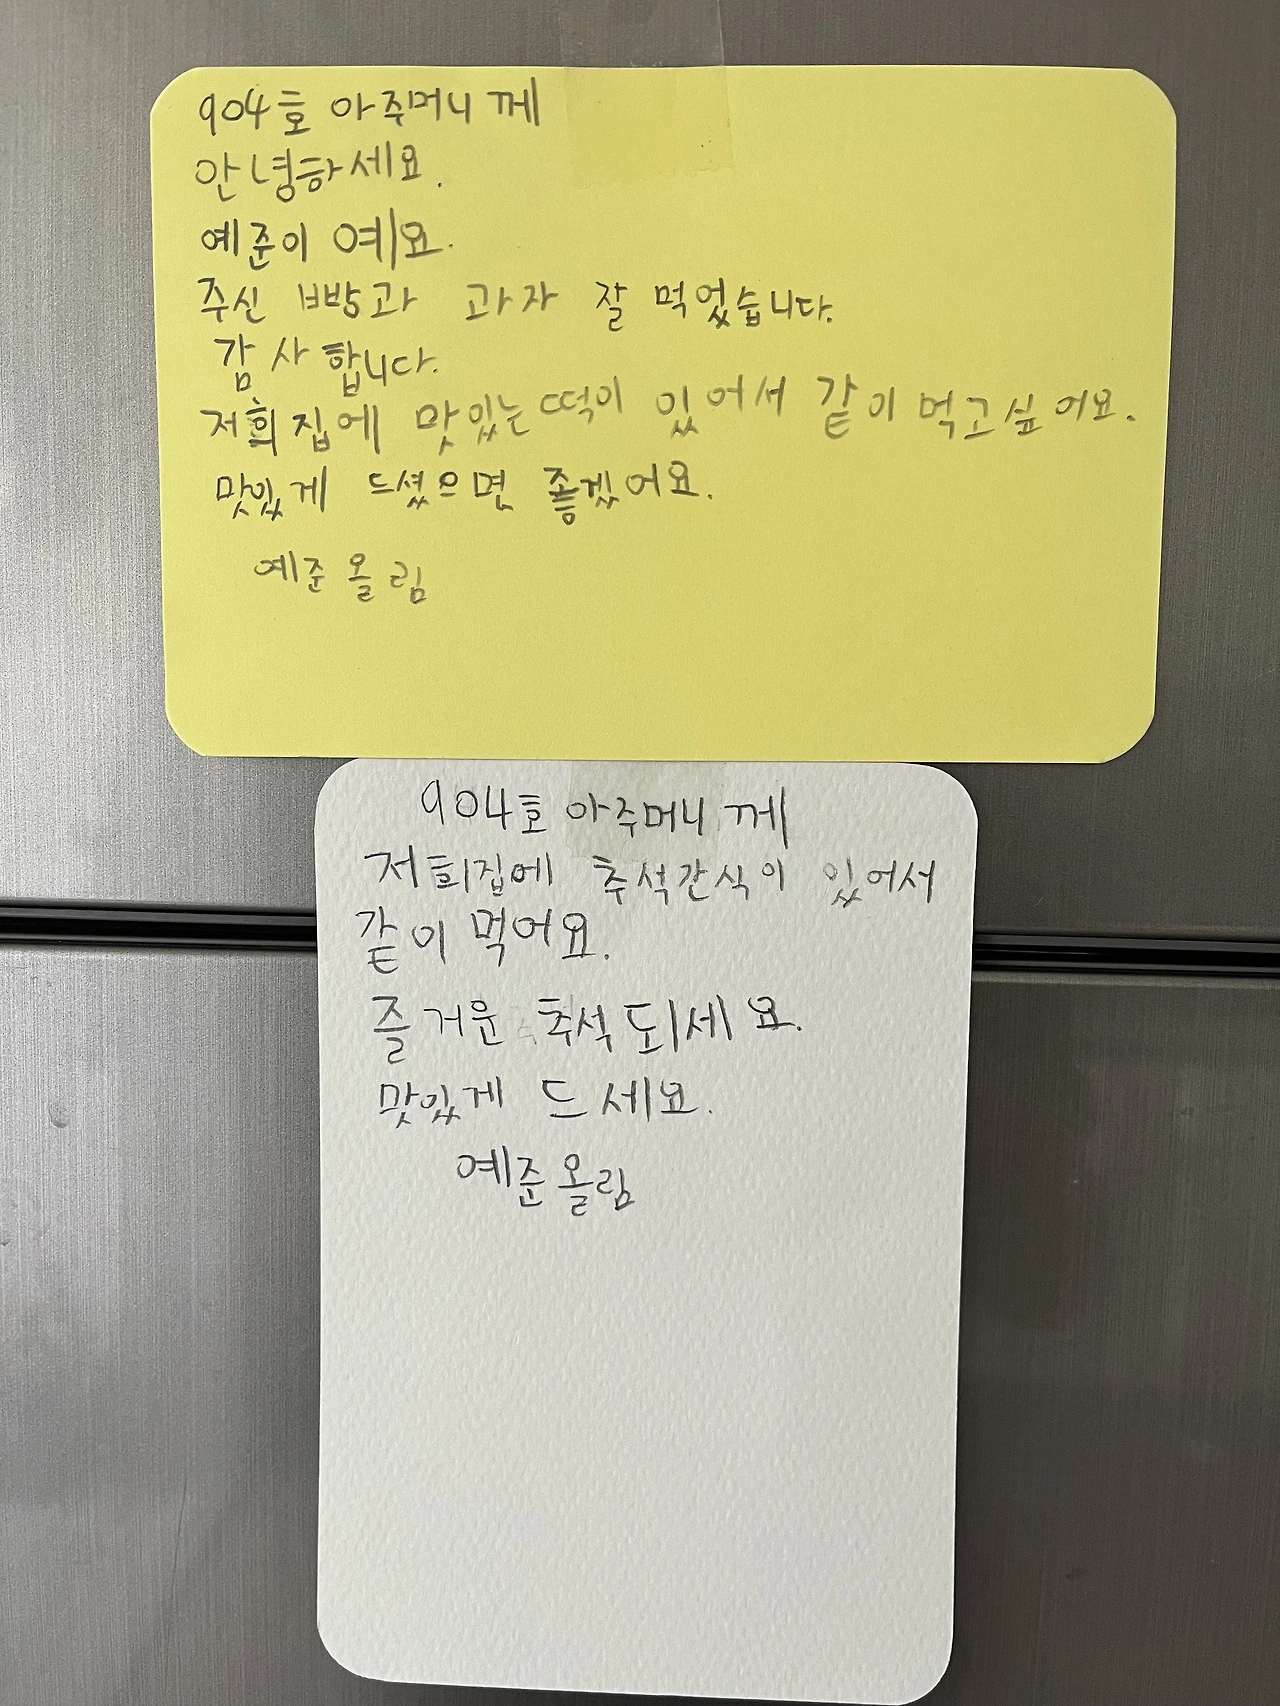 904호 아주머니께
안녕하세요.
예준이예요.
주신 빵과 과자 잘 먹었습니다.
감사합니다.
저희집에 맛있는떡이 있어서 같이 먹고싶어요.
맛있게 드셨으면 좋겠어요.
예준올림
904호 아주머니께
저희집에 추석간식이 있어서
같이 먹어요.
즐거운 추석 되세요.
맛있게 드세요.
예준올림